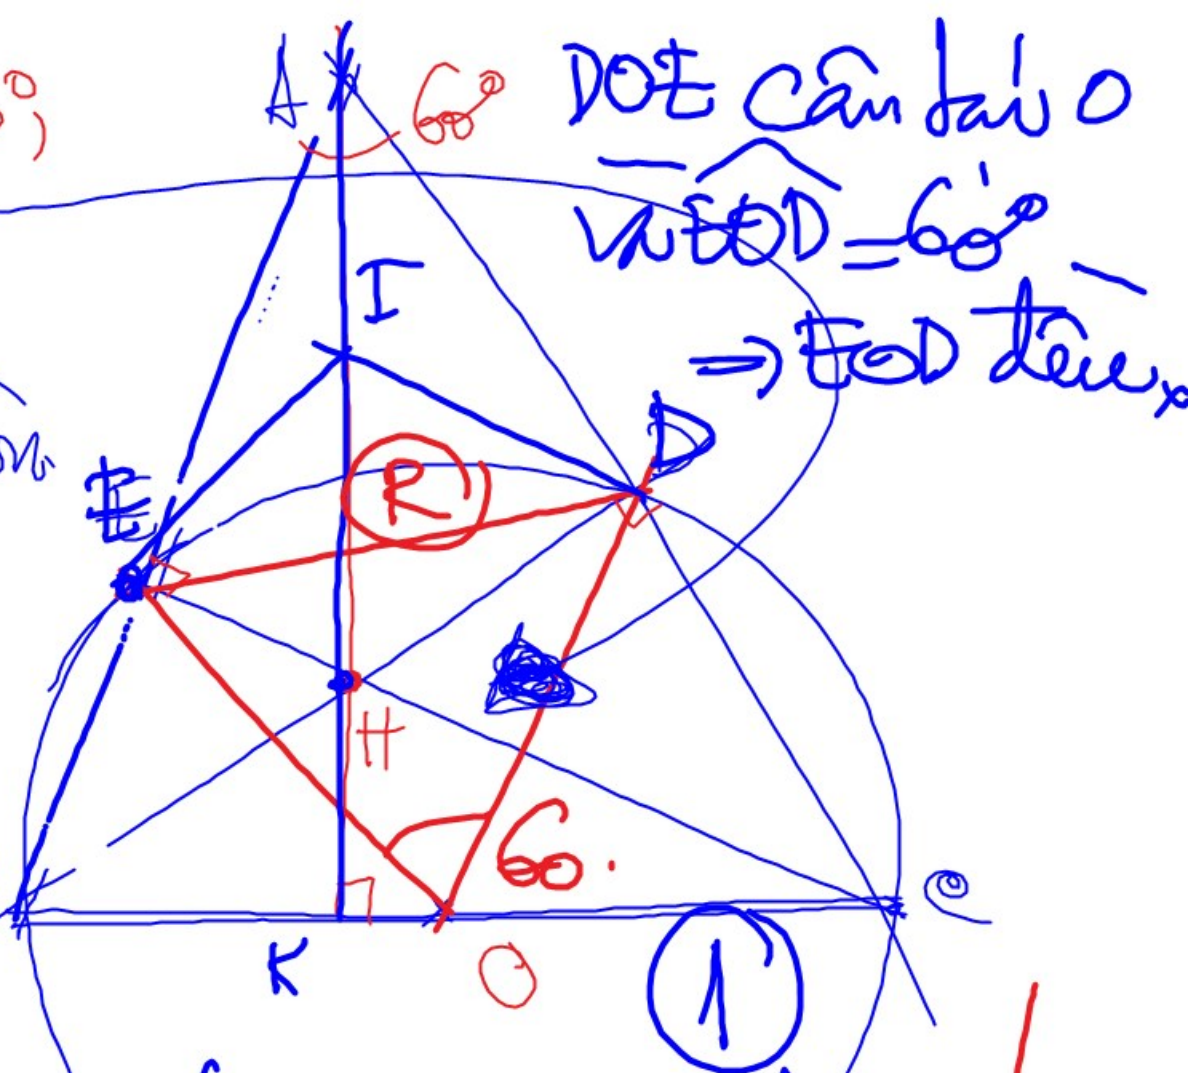 A 60° DOE cân tại O
và EOD = 60°
I
⇒ EOD đều
D
E
R
H
60
C
K O 1